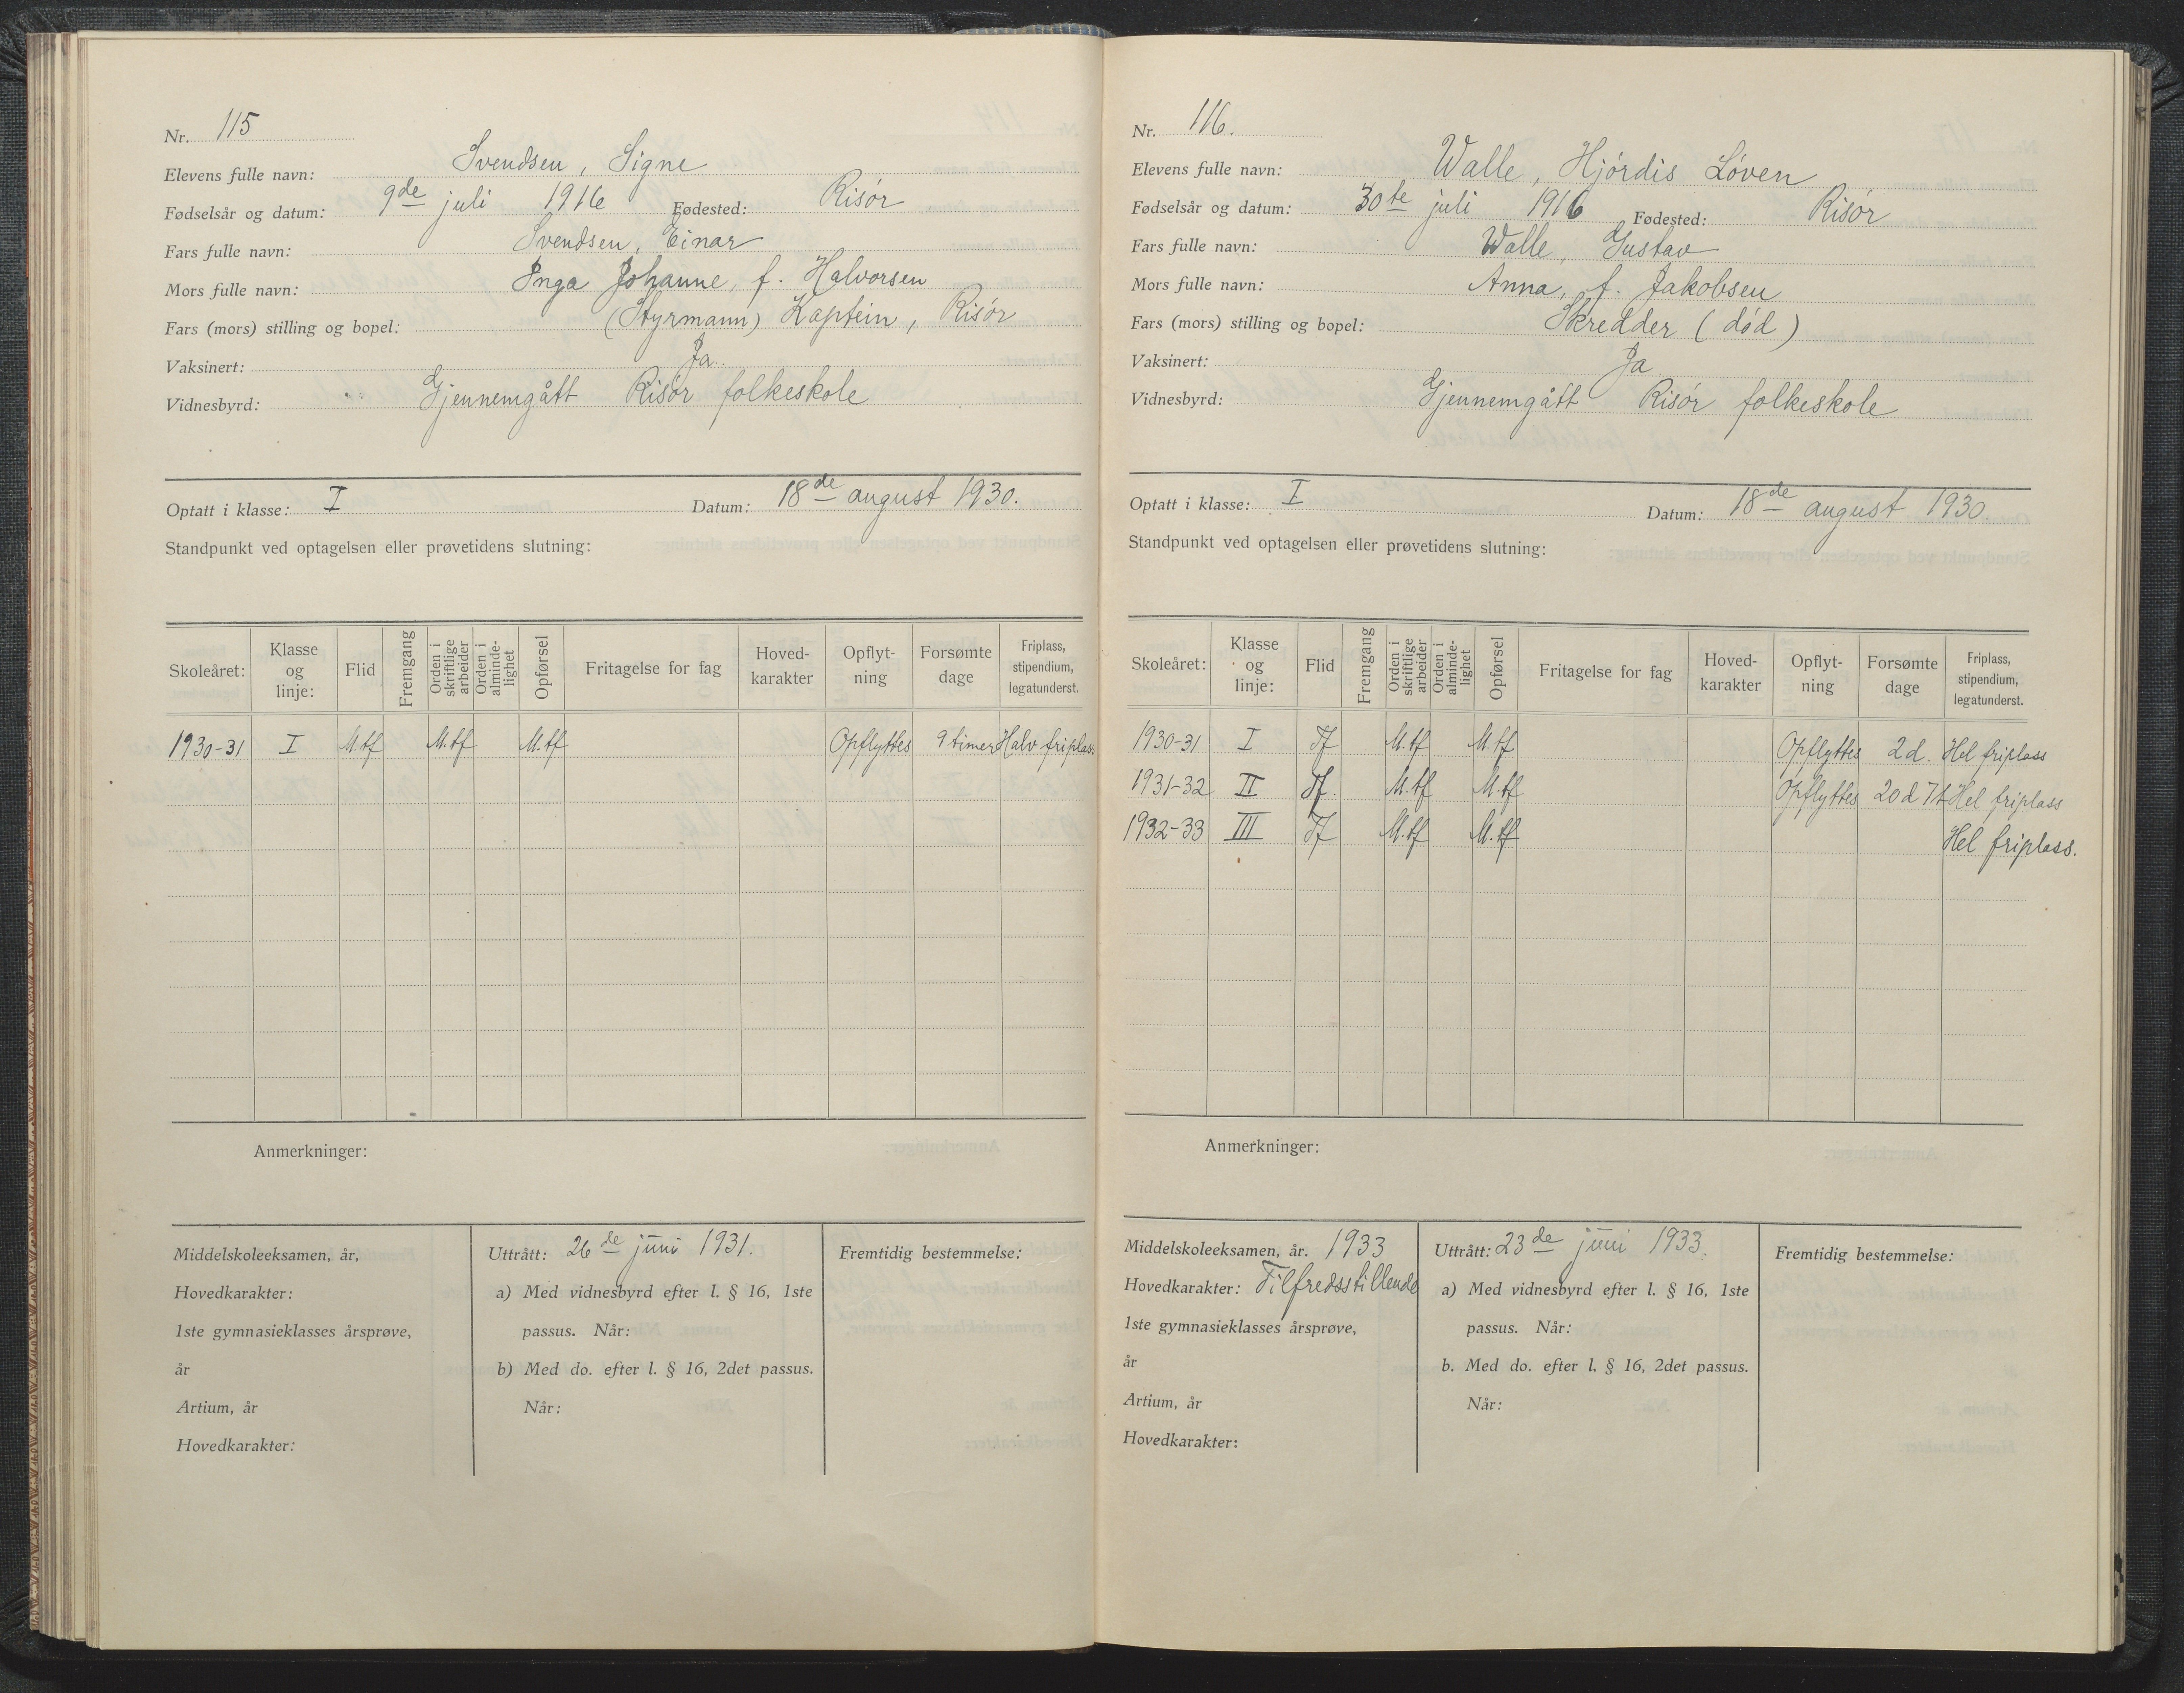 Nr. 115
Elevens fulle navn: Svendsen, Signe
Fødselsår og datum: 9de juli 1916 Fødested: Risør
Fars fulle navn: Svendsen, Einar
Mors fulle navn: Inga Johanne, f. Halvorsen
Fars (mors) stilling og bopel: (Styrmann) Kaptein, Risør
Vaksinert: Ja
Vidnesbyrd: Gjennemgått Risør folkeskole
Optatt i klasse: I Datum: 18de august 1930.
Standpunkt ved optagelsen eller prøvetidens slutning:
Skoleåret: Klasse og linje: Flid Fremgang Orden i skriftlige arbeider Orden i alminde-lighet Opførsel Fritagelse for fag Hoved-karakter Opflyt-ning Forsømte dage Friplass, stipendium, legatunderst.
1930-31 I M.tf M.tf M.tf Opflyttes 9 timer Halv friplass
Anmerkninger:
Middelskoleeksamen, år,
Hovedkarakter:
1ste gymnasieklasses årsprøve,
år
Artium, år
Hovedkarakter:
Uttrått: 26de juni 1931.
a) Med vidnesbyrd efter l. § 16, 1ste
passus. Når:
b) Med do. efter l. § 16, 2det passus.
Når:
Fremtidig bestemmelse:
Nr. 116.
Elevens fulle navn: Walle, Hjördis Løven
Fødselsår og datum: 30te juli 1916 Fødested: Risør
Fars fulle navn: Walle, Gustav
Mors fulle navn: Anna, f. Jakobsen
Fars (mors) stilling og bopel: Skredder (død)
Vaksinert: Ja
Vidnesbyrd: Gjennemgått Risør folkeskole
Optatt i klasse: I Datum: 18de august 1930
Standpunkt ved optagelsen eller prøvetidens slutning:
Skoleåret: Klasse og linje: Flid Fremgang Orden i skriftlige arbeider Orden i alminde-lighet Opførsel Fritagelse for fag Hoved-karakter Opflyt-ning Forsømte dage Friplass, stipendium, legatunderst.
1930-31 I Tf M.tf M.tf Opflyttes 2 d. Hel friplass
1931-32 II Tf. M.tf M.tf Opflyttes 20 d 7 t Hel friplass
1932-33 III Tf M.tf M.tf Hel friplass.
Anmerkninger:
Middelskoleeksamen, år. 1933
Hovedkarakter: Tilfredsstillende
1ste gymnasieklasses årsprøve,
år
Artium, år
Hovedkarakter:
Uttrått: 23de juni 1933.
a) Med vidnesbyrd efter l. § 16, 1ste
passus. Når:
b. Med do. efter l. § 16, 2det passus.
Når:
Fremtidig bestemmelse: